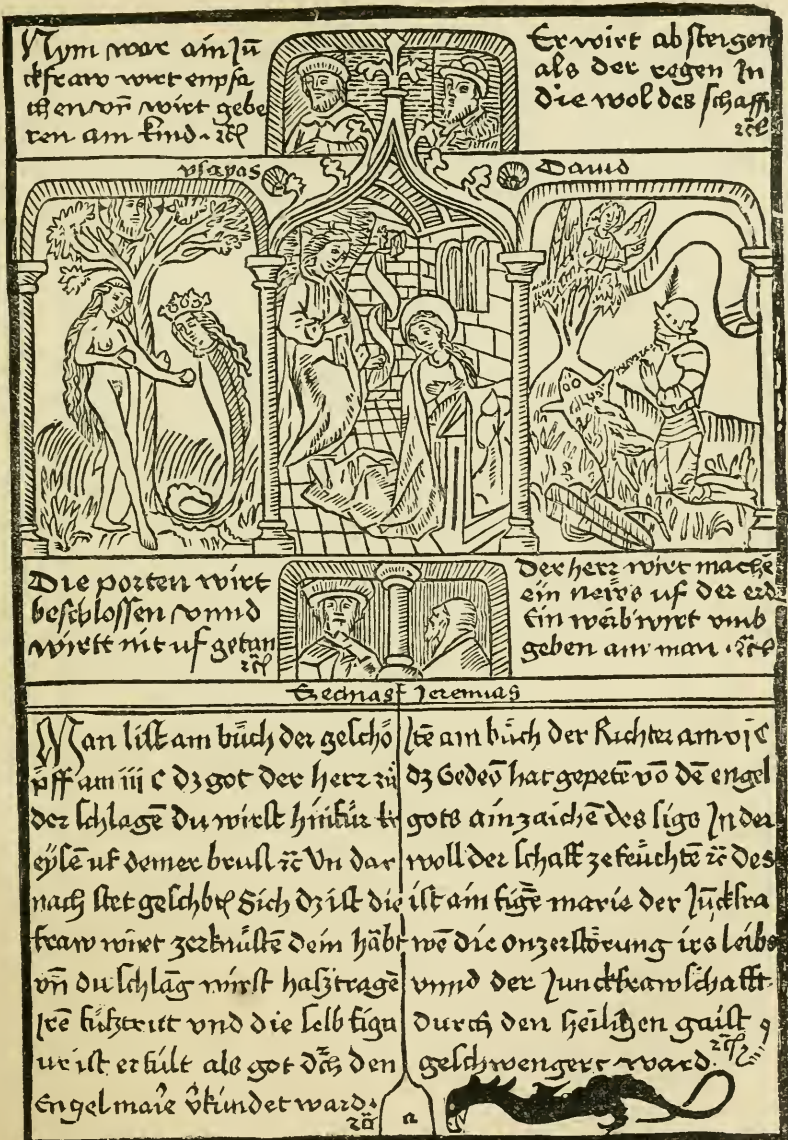 Nym war ain Jū
ckfraw wirt enpfa
chen vn̄ wirt gebe
ren ain kind ⁊c̄
Er wirt absteigen
als der regen In
die wol des schaffs
⁊c̄
ysayas
Dauid
Die porten wirt
beschlossen vnnd
wirtt nit uf getan
⁊c̄
Der herr wirt machē
ein news uf der erd
Ein weib wirt vmb
geben ain man ⁊c̄
Jeremias
Man list am bůch der geschö
pff am iii c dz got der herr zů
der schlagē Du wirst hinfür kr
eysē uf deiner brust ⁊c̄ Vn dar
nach stet Sich dz ist die
fraw wirt zerknüstē dein hăbt
vn̄ du schlāg wirst hasz tragē
Irē fůsztritt vnd die selb figu
ur ist erfült als got dch̄ den
Engel ward
⁊c̄
Itē am bůch der Richter am vj c
dz Gedeō hat gepetē vō dē engel
gots ain zaichē des sigs In der
woll der schaff ze feüchtē ⁊c̄ des
ist ain figē marie der Jūckfra
wē die onzerstörung irs leibs
vnnd der Junckfrawschafft
durch den heiligen gaist
geschwengert ward. ⁊c̄